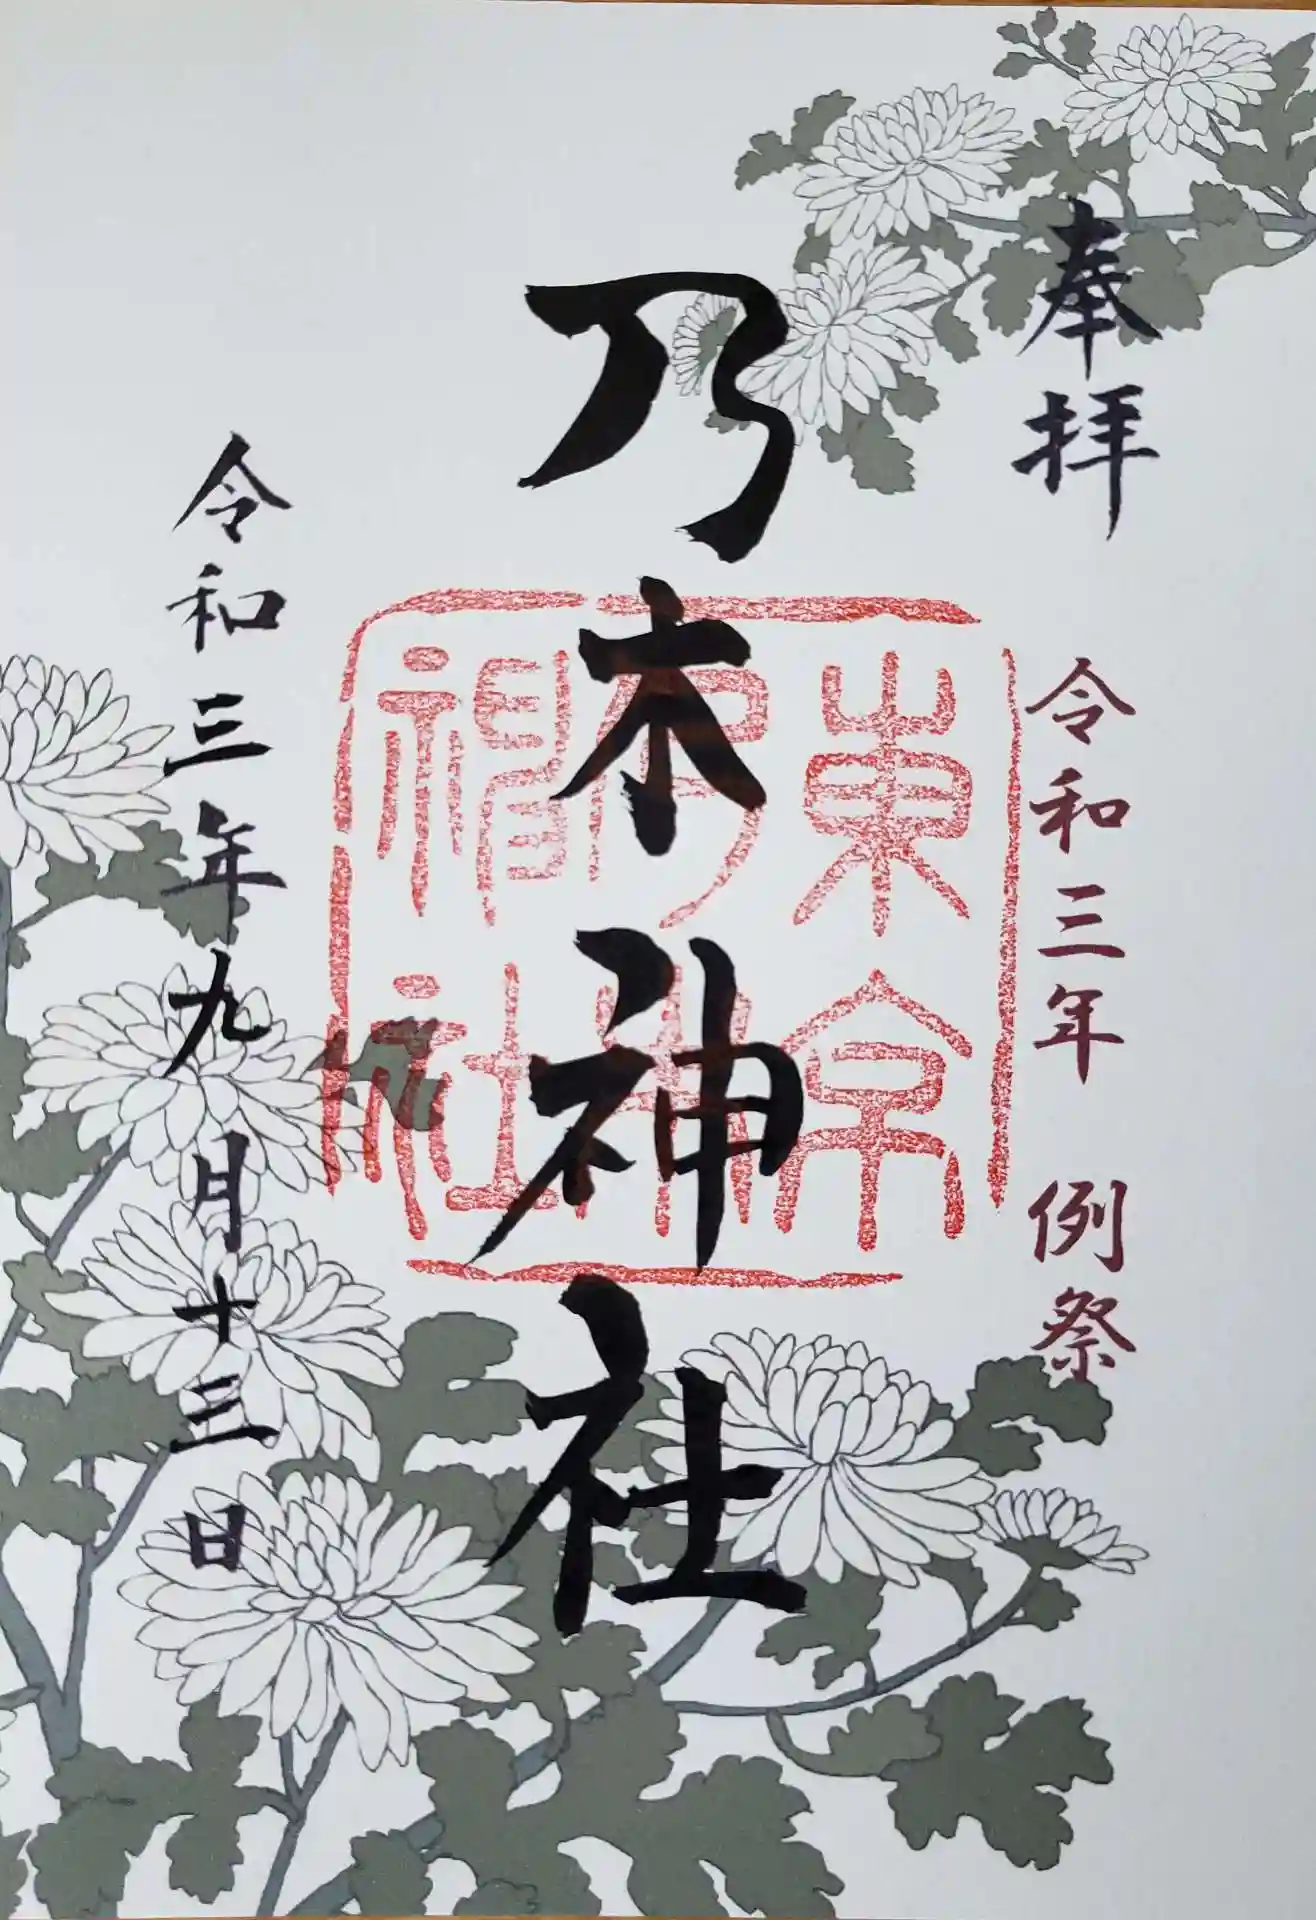 奉拝
令和三年 例祭
乃木神社
東京乃木神社
令和三年九月十三日